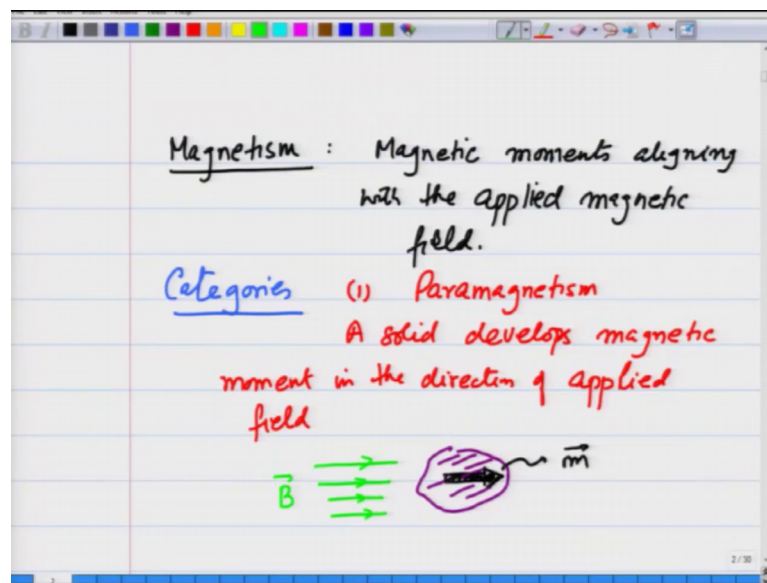 Magnetism : Magnetic moments aligning
with the applied magnetic
field.
Categories (1) Paramagnetism
A solid develops magnetic
moment in the direction of applied
field
B m
2/30
2